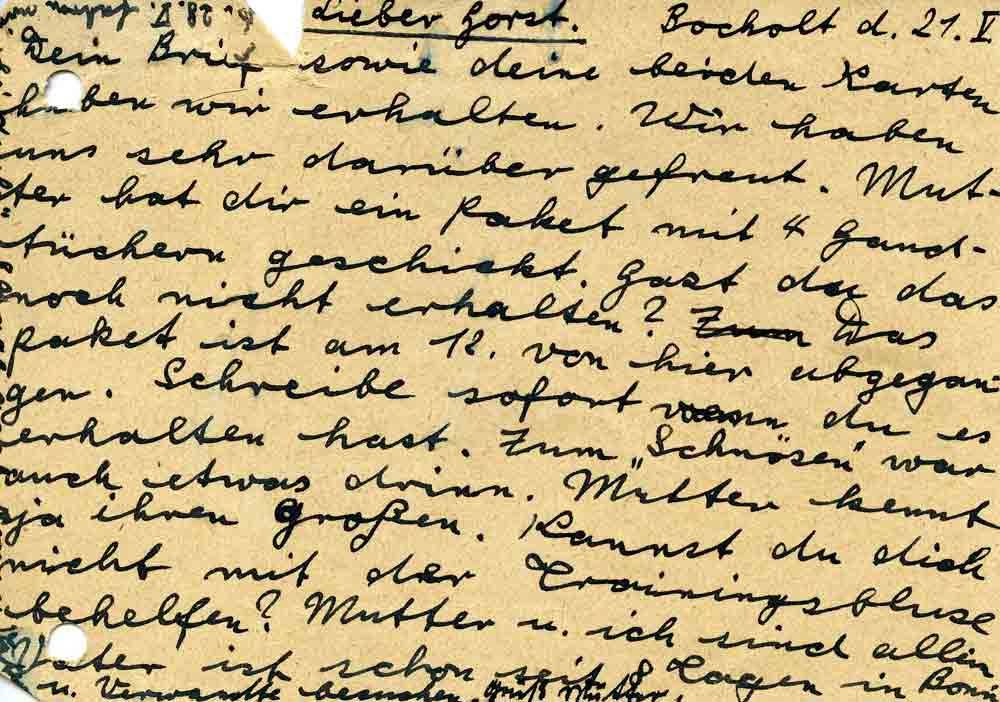 Lieber Horst. Bocholt d. 21. V
Dein Brief sowie deine beiden Karten
haben wir erhalten. Wir haben
uns sehr darüber gefreut. Mut-
ter hat dir ein Paket mit 4 Hand-
tüchern geschickt. Hast du das
noch nicht erhalten? Zum Das
Paket ist am 18. von hier abgegan-
gen. Schreibe sofort wenn du es
erhalten hast. Zum „Schnösen" war
auch etwas drinn. Mutter kennt
ja ihren Großen. Kannst du dich
nicht mit der Trainingsbluse
behelfen? Mutter u. ich sind allein
Vater ist schon seit 8 Tagen in Bonn
u. Verwandte besuchen. Gruß Mutter.
28. V.